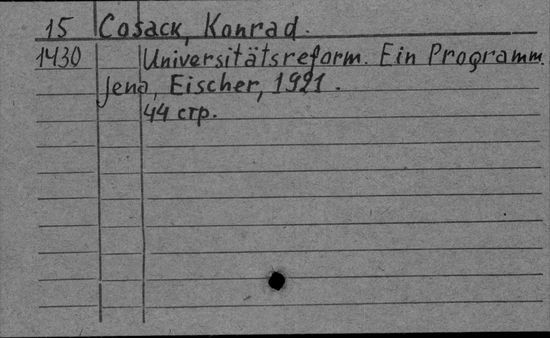 15 Cosack, Konrad.
1430 Universitätsreform. Ein Programm.
Jena, Eischer, 1921.
44 стр.